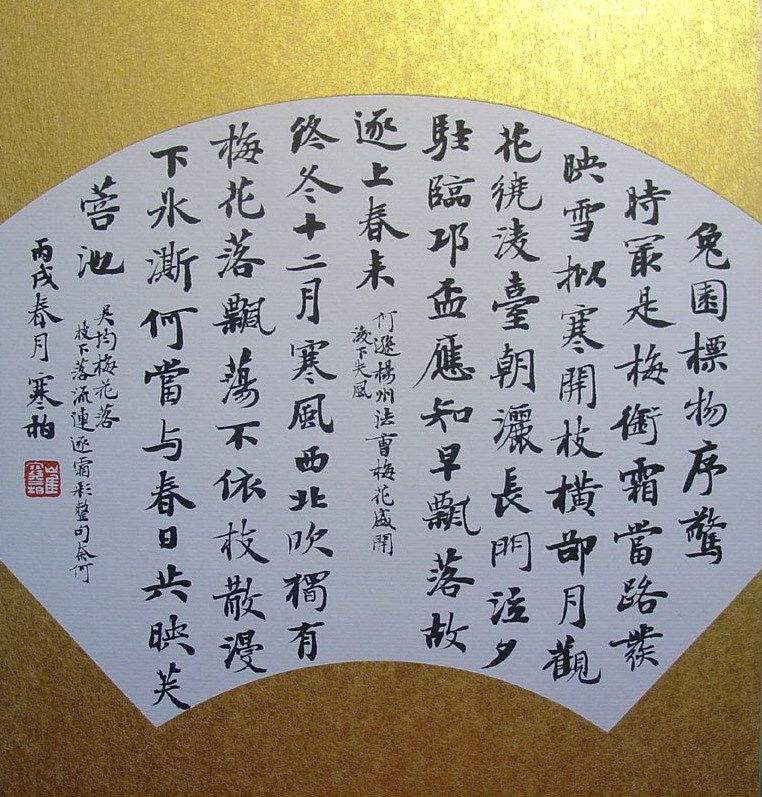 兔園標物序驚
時冣是梅銜霜當路發
映雪擬寒開枝橫卻月觀
花繞淩臺朝灑長門泣夕
駐臨邛盃應知早飄落故
逐上春来
何遜楊州法曹梅花盛開
淩下失風
終冬十二月寒風西北吹獨有
梅花落飄蕩不依枝散漫
下冰澌何當与春日共映芙
蓉池
吳均梅花落
枝下落流連逐霜彩整句奈何
丙戌春月寒柏
崔寒柏